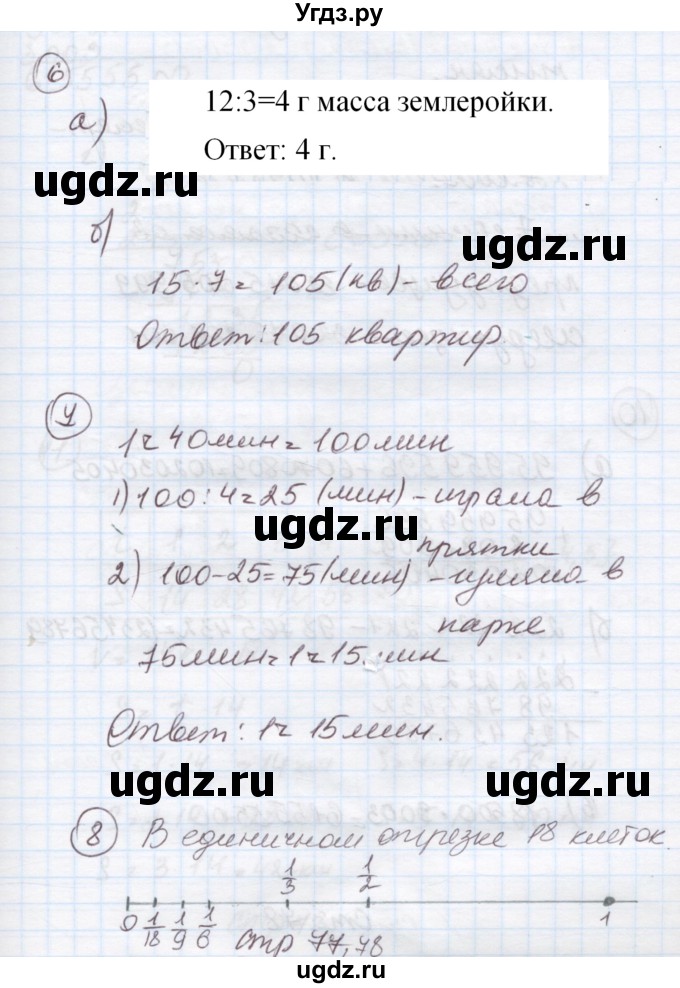 Угдз.ру
6
а)
12:3=4 г масса землеройки.
Ответ: 4 г.
ugdz.ru
ugdz.ru
б)
15·7=105(кв)- всего
Ответ:105 квартир.
7
1ч 40мин=100мин
1)100:4=25 (мин)-играла в
прятки
ugdz.ru
2) 100-25=75(мин) -гуляла в
парке
75мин=1ч15мин
Ответ: 1ч 15мин.
ugdz.ru
ugdz.ru
8 В единичном отрезке 18 клеток.
1/3 1/2
0 1/18 1/9 1/6 1
стр 77,78
ugdz.ru